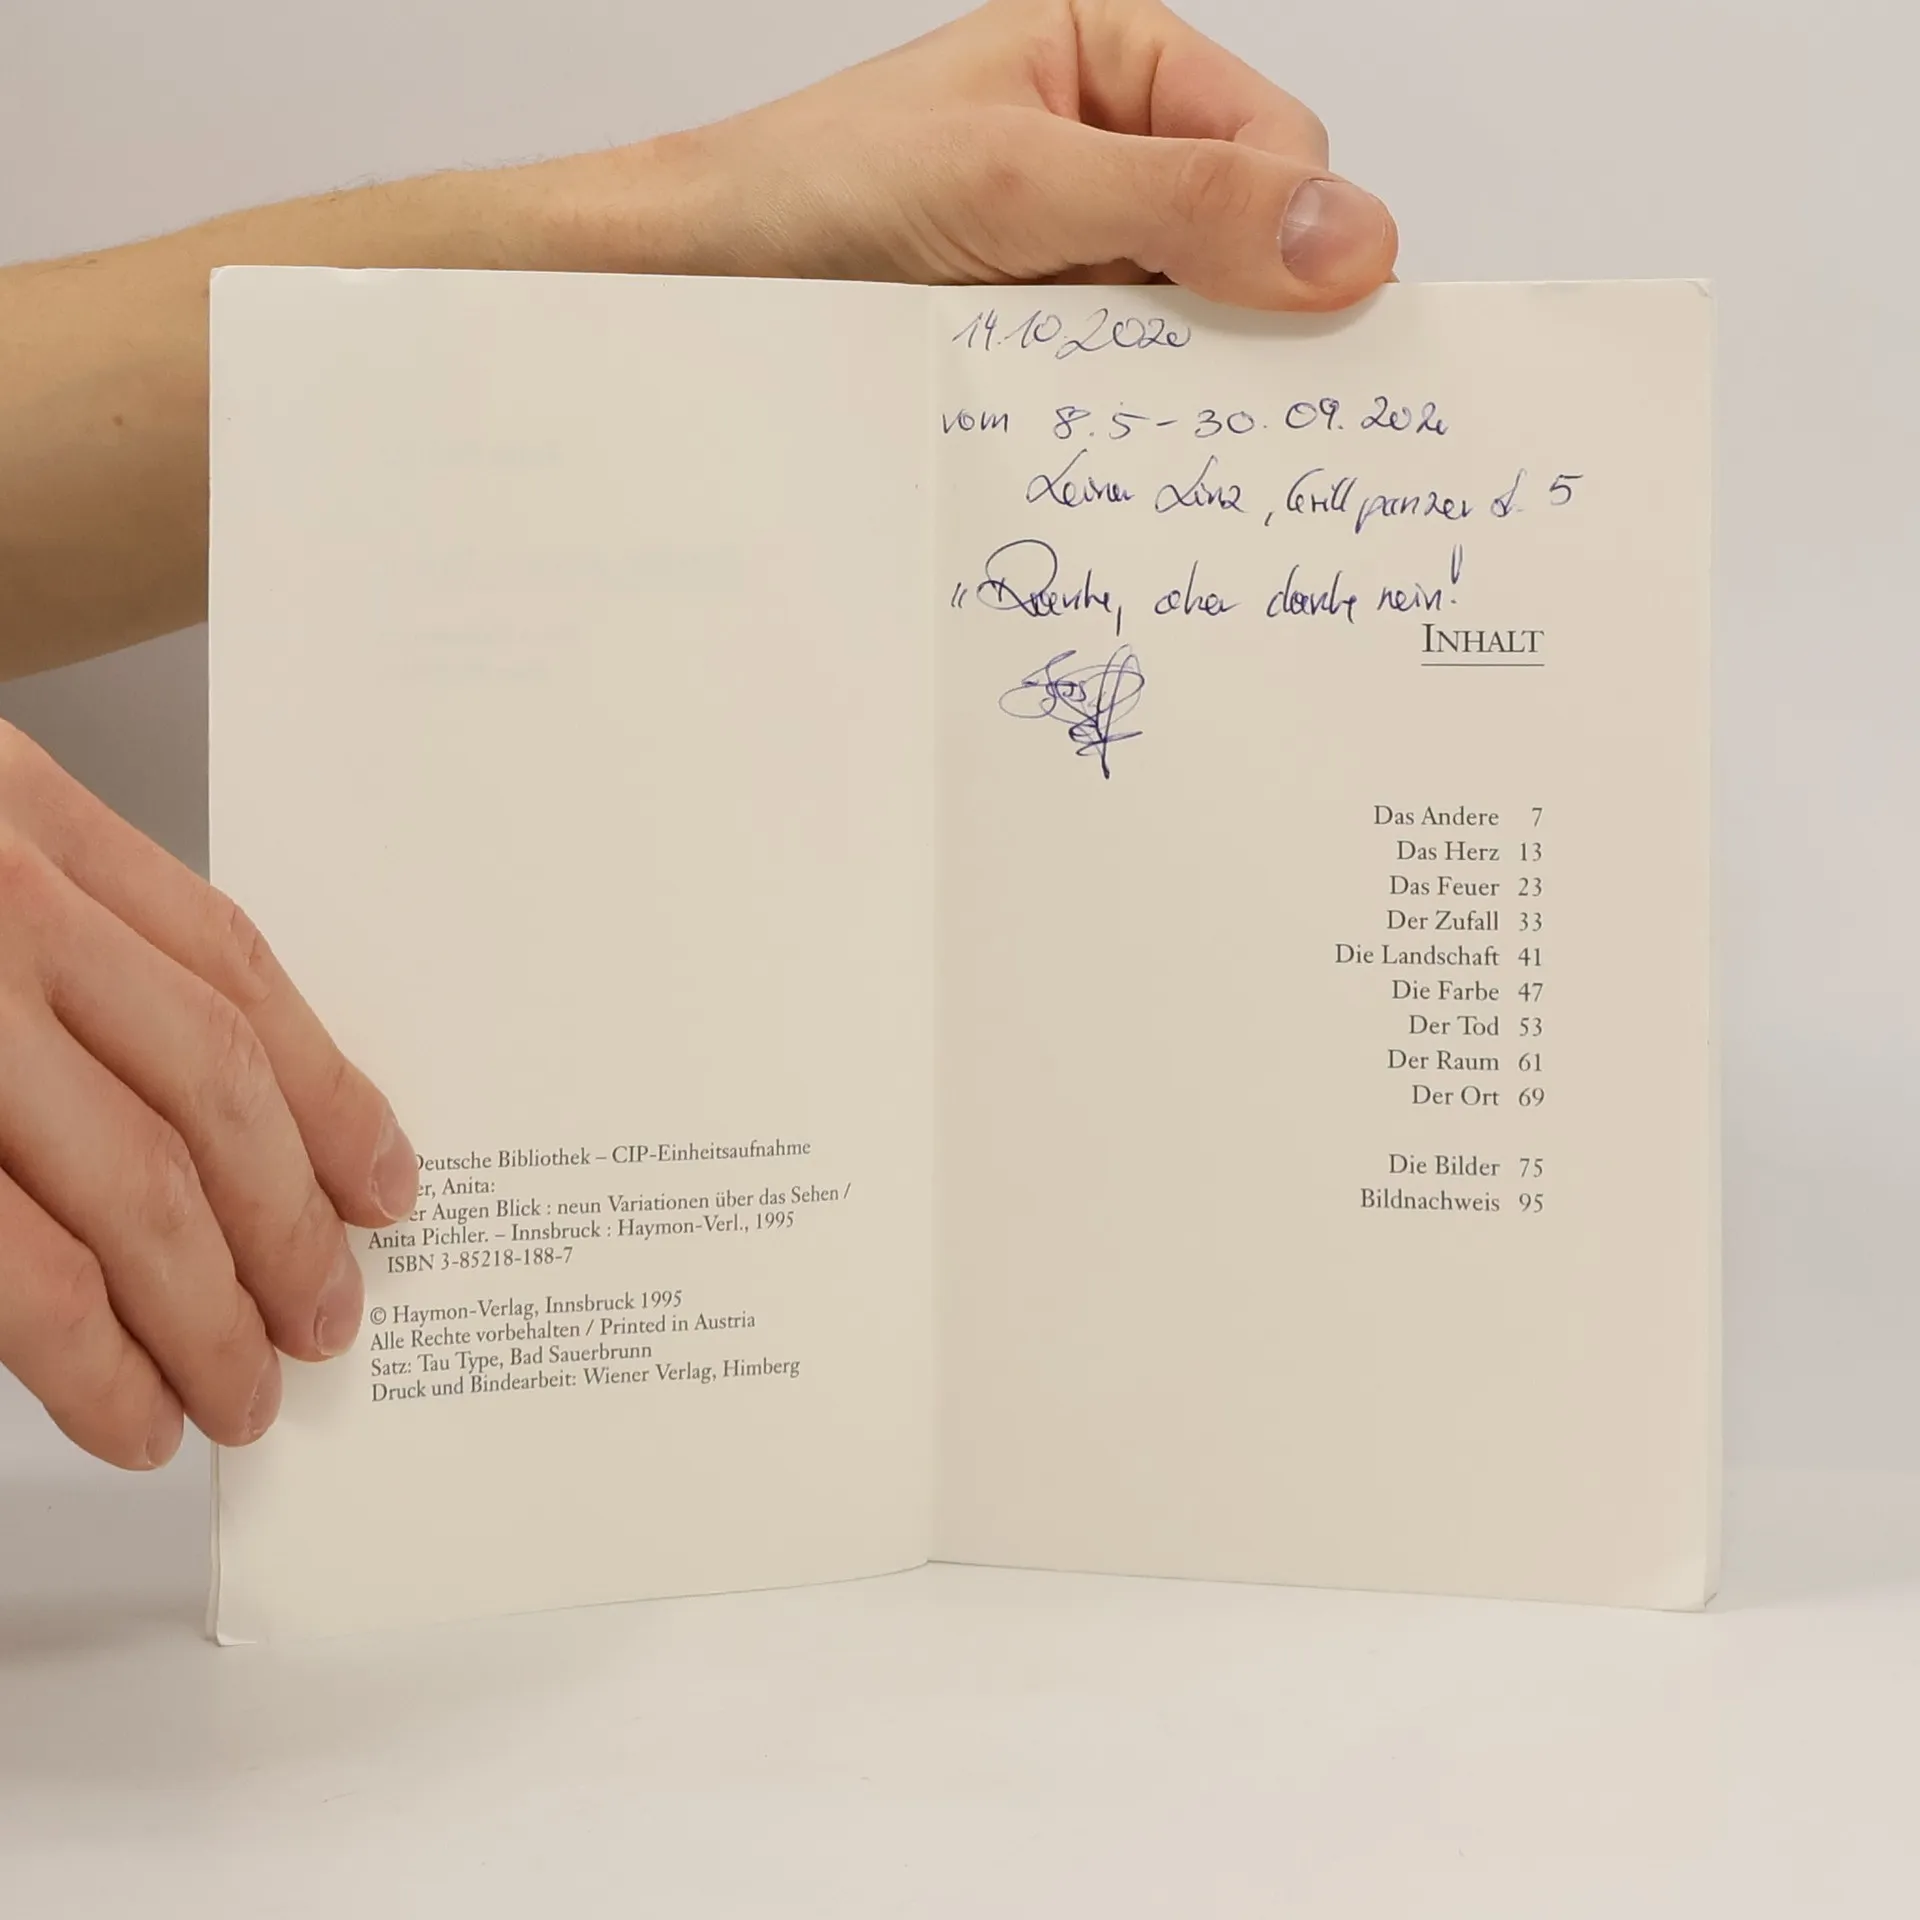 Deutsche Bibliothek – CIP-Einheitsaufnahme
er, Anita:
er Augen Blick : neun Variationen über das Sehen /
Anita Pichler. – Innsbruck : Haymon-Verl., 1995
ISBN 3-85218-188-7
© Haymon-Verlag, Innsbruck 1995
Alle Rechte vorbehalten / Printed in Austria
Satz: Tau Type, Bad Sauerbrunn
Druck und Bindearbeit: Wiener Verlag, Himberg
14.10.2020
vom 8.5 - 30.09.2020
Leiner Linz, Grillparzer 5
aber danke nein!
INHALT
Das Andere 7
Das Herz 13
Das Feuer 23
Der Zufall 33
Die Landschaft 41
Die Farbe 47
Der Tod 53
Der Raum 61
Der Ort 69
Die Bilder 75
Bildnachweis 95